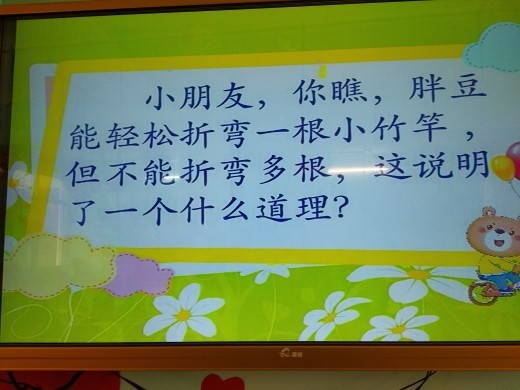 小朋友，你瞧，胖豆
能轻松折弯一根小竹竿，
但不能折弯多根，这说明
了一个什么道理？